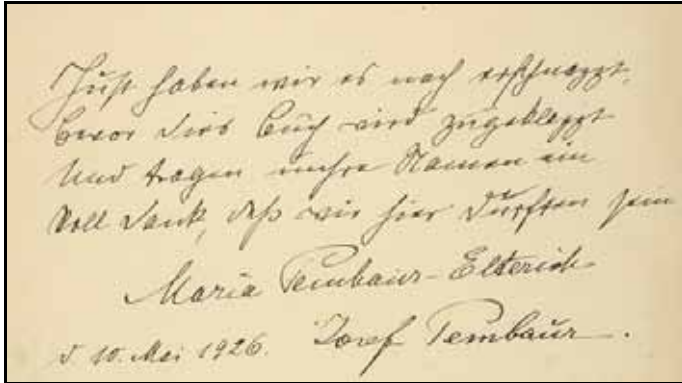 Just haben wir es noch erschnappt,
bevor dies Buch wird zugeklappt
Und tragen unsre Namen ein
Voll Dank, daß wir hier durften sein
Maria Pembaur-Elterich
d 10. Mai 1926. Josef Pembaur.